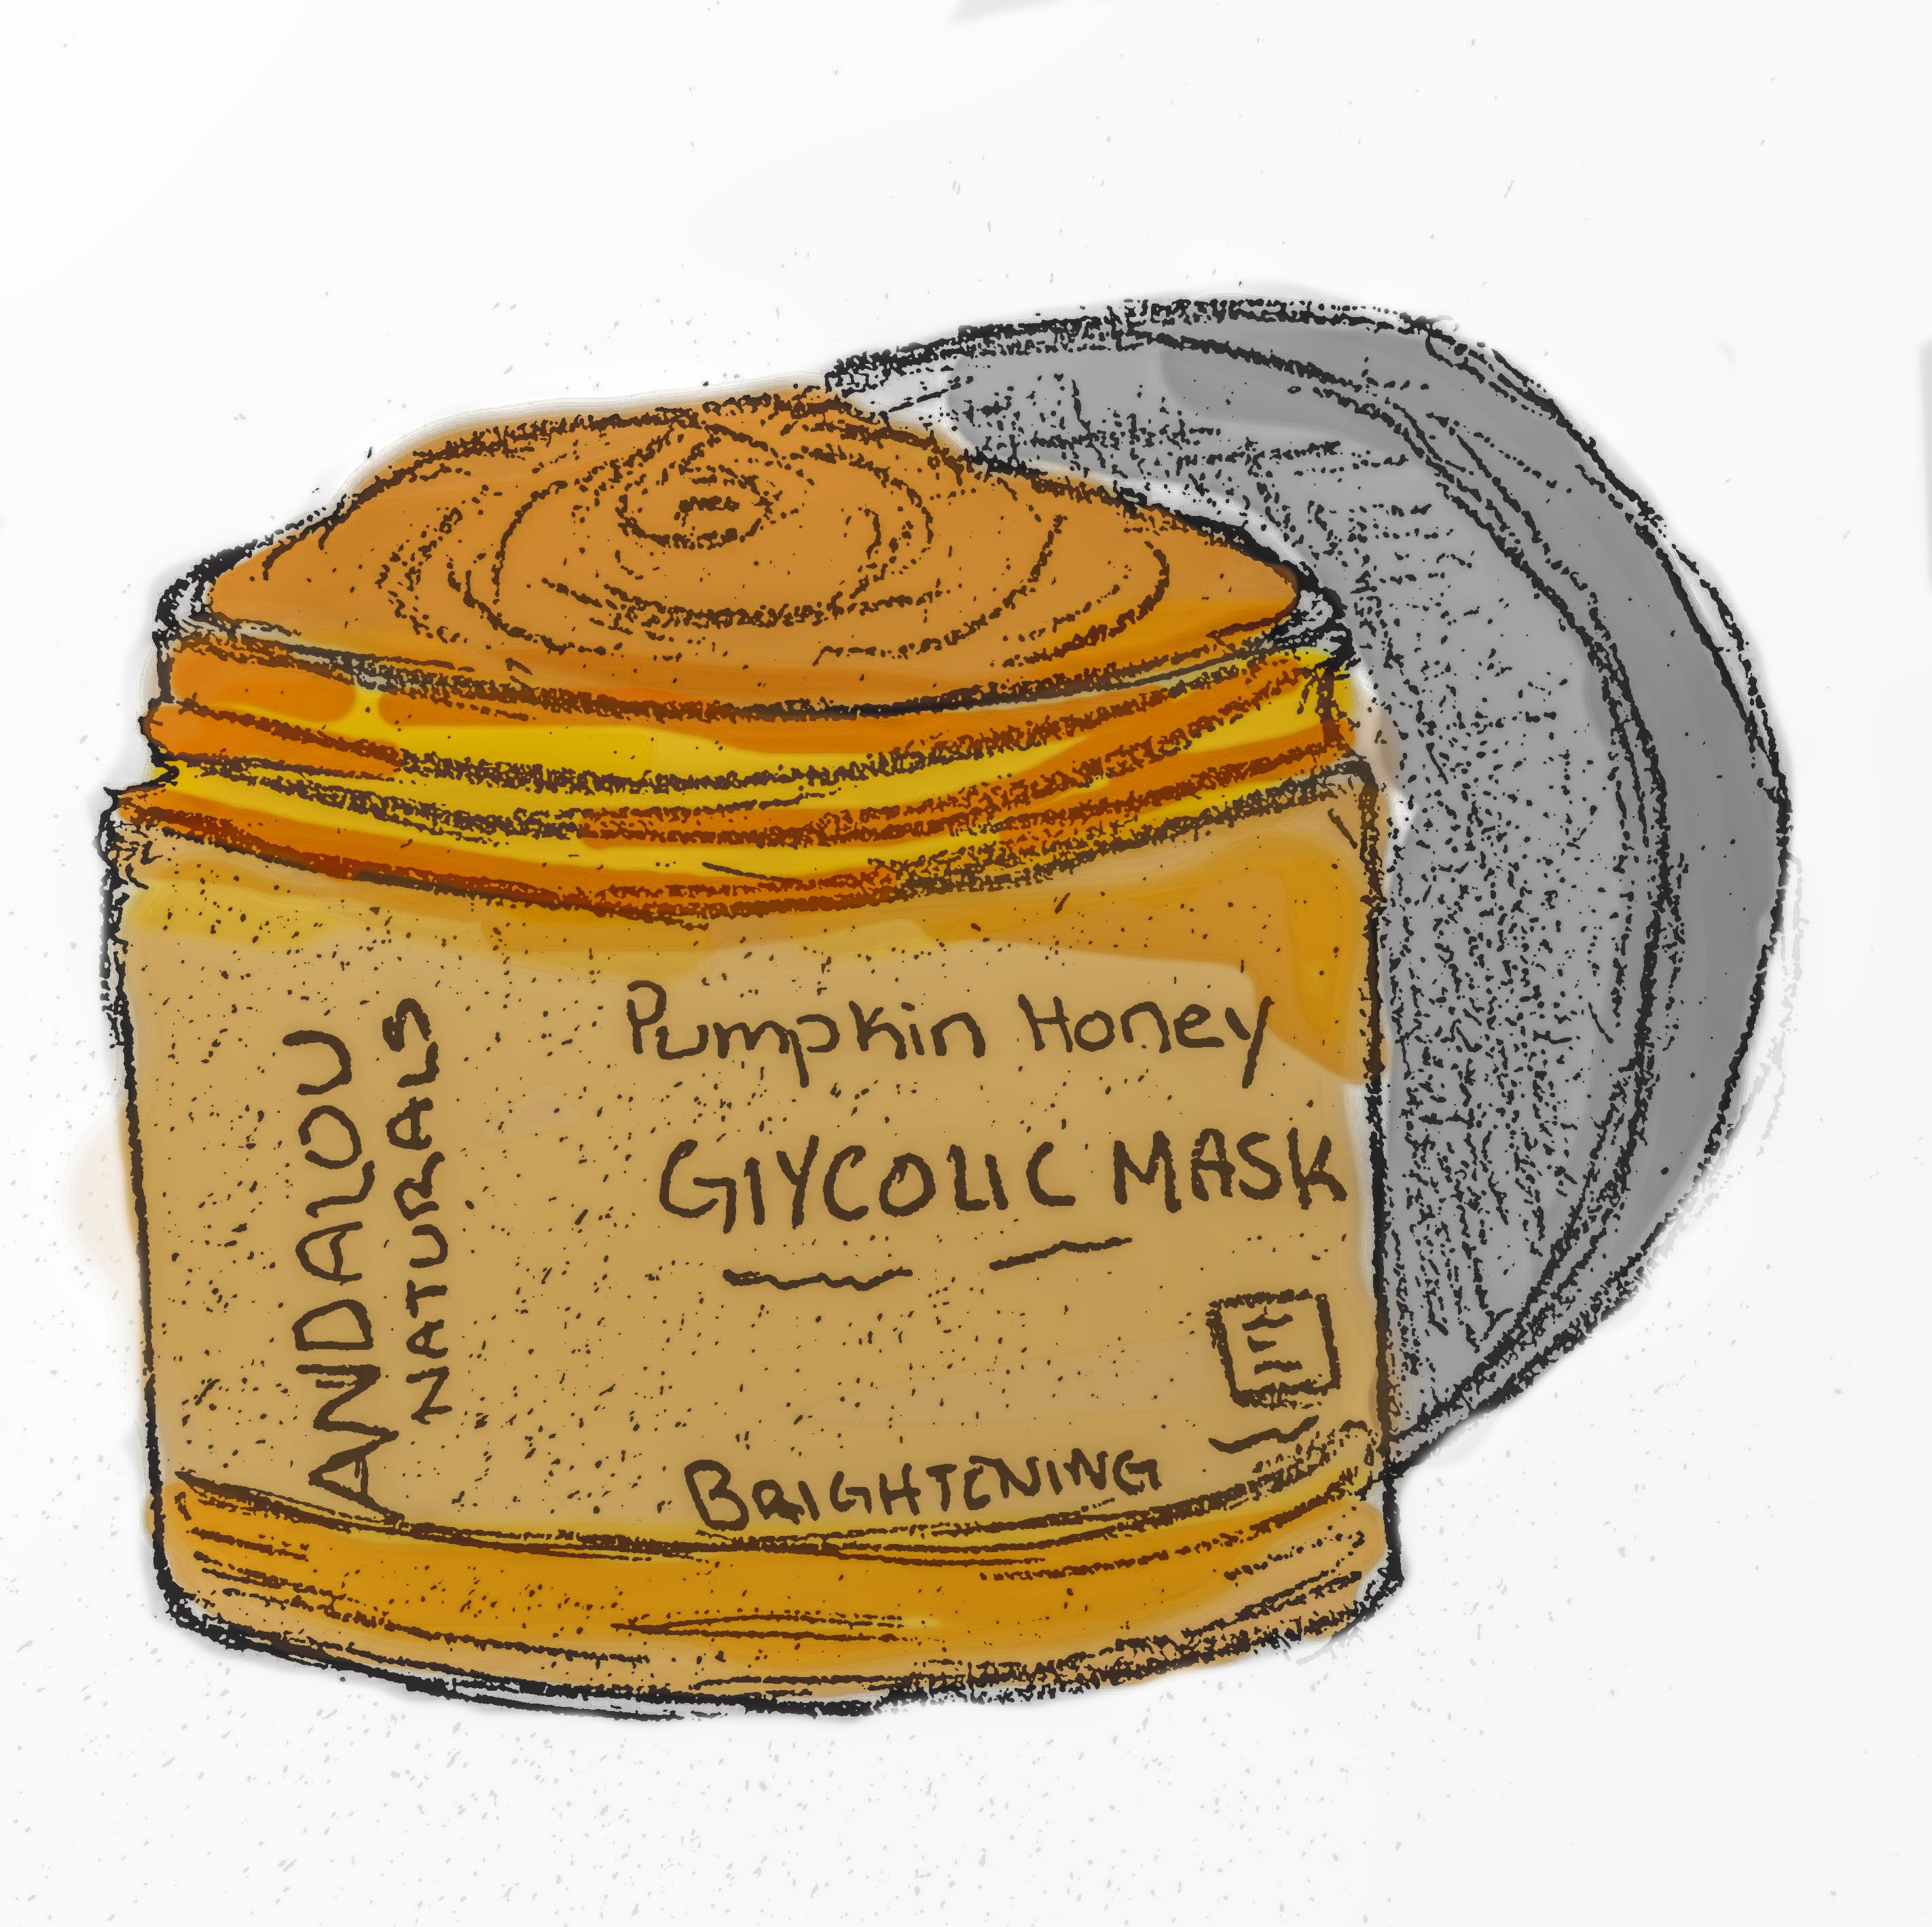 ANDALOU
NATURALS
Pumpkin Honey
GLYCOLIC MASK
BRIGHTENING